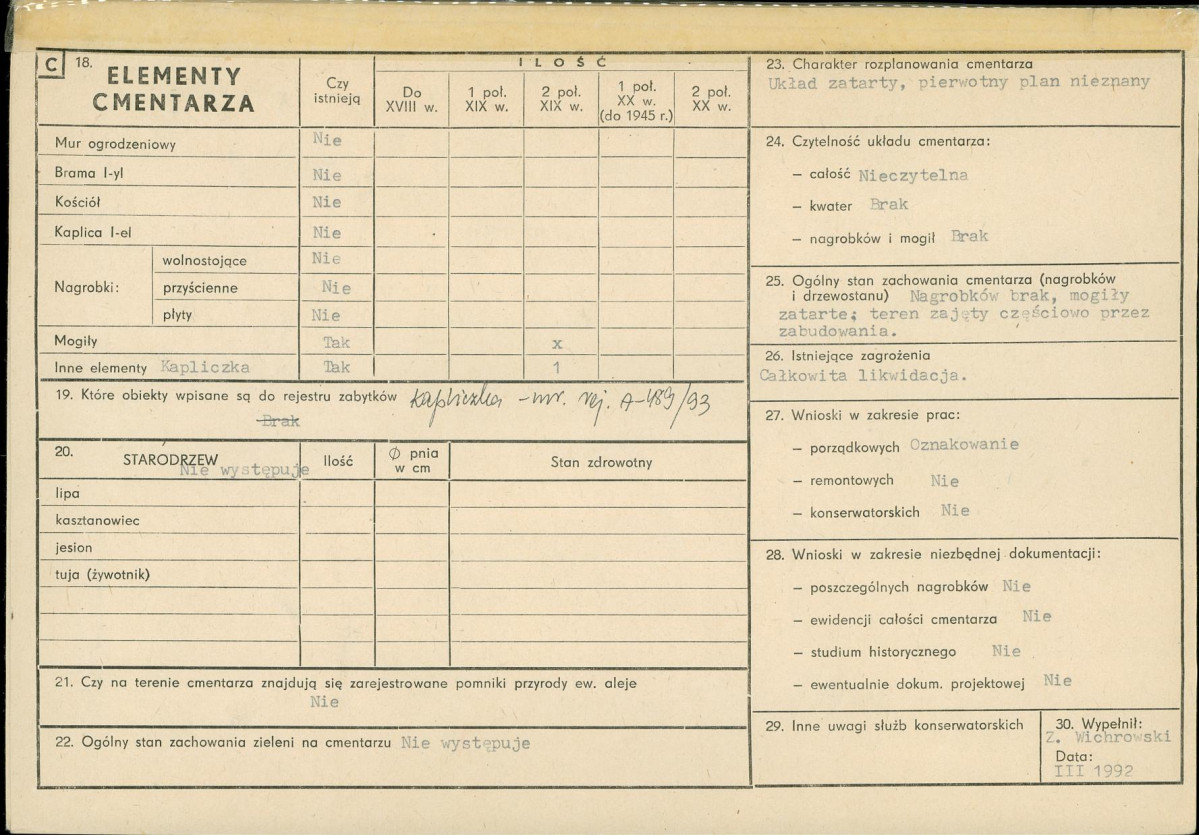 C 18. ELEMENTY CMENTARZA
Czy istnieją
ILOŚĆ
Do XVIII w.
1 poł. XIX w.
2 poł. XIX w.
1 poł. XX w. (do 1945 r.)
2 poł. XX w.
Mur ogrodzeniowy Nie
Brama I-yl Nie
Kościół Nie
Kaplica I-el Nie
Nagrobki:
wolnostojące Nie
przyścienne Nie
płyty Nie
Mogiły Tak x
Inne elementy Kapliczka Tak 1
19. Które obiekty wpisane są do rejestru zabytków Kapliczka - nr. rej. A-489/93
Brak
20. STARODRZEW
Nie występuje
Ilość
Ø pnia w cm
Stan zdrowotny
lipa
kasztanowiec
jesion
tuja (żywotnik)
21. Czy na terenie cmentarza znajdują się zarejestrowane pomniki przyrody ew. aleje
Nie
22. Ogólny stan zachowania zieleni na cmentarzu Nie występuje
23. Charakter rozplanowania cmentarza
Układ zatarty, pierwotny plan nieznany
24. Czytelność układu cmentarza:
– całość Nieczytelna
– kwater Brak
– nagrobków i mogił Brak
25. Ogólny stan zachowania cmentarza (nagrobków
i drzewostanu) Nagrobków brak, mogiły
zatarte; teren zajęty częściowo przez
zabudowania.
26. Istniejące zagrożenia
Całkowita likwidacja.
27. Wnioski w zakresie prac:
– porządkowych Oznakowanie
– remontowych Nie
– konserwatorskich Nie
28. Wnioski w zakresie niezbędnej dokumentacji:
– poszczególnych nagrobków Nie
– ewidencji całości cmentarza Nie
– studium historycznego Nie
– ewentualnie dokum. projektowej Nie
29. Inne uwagi służb konserwatorskich
30. Wypełnił:
Z. Wichrowski
Data:
III 1992